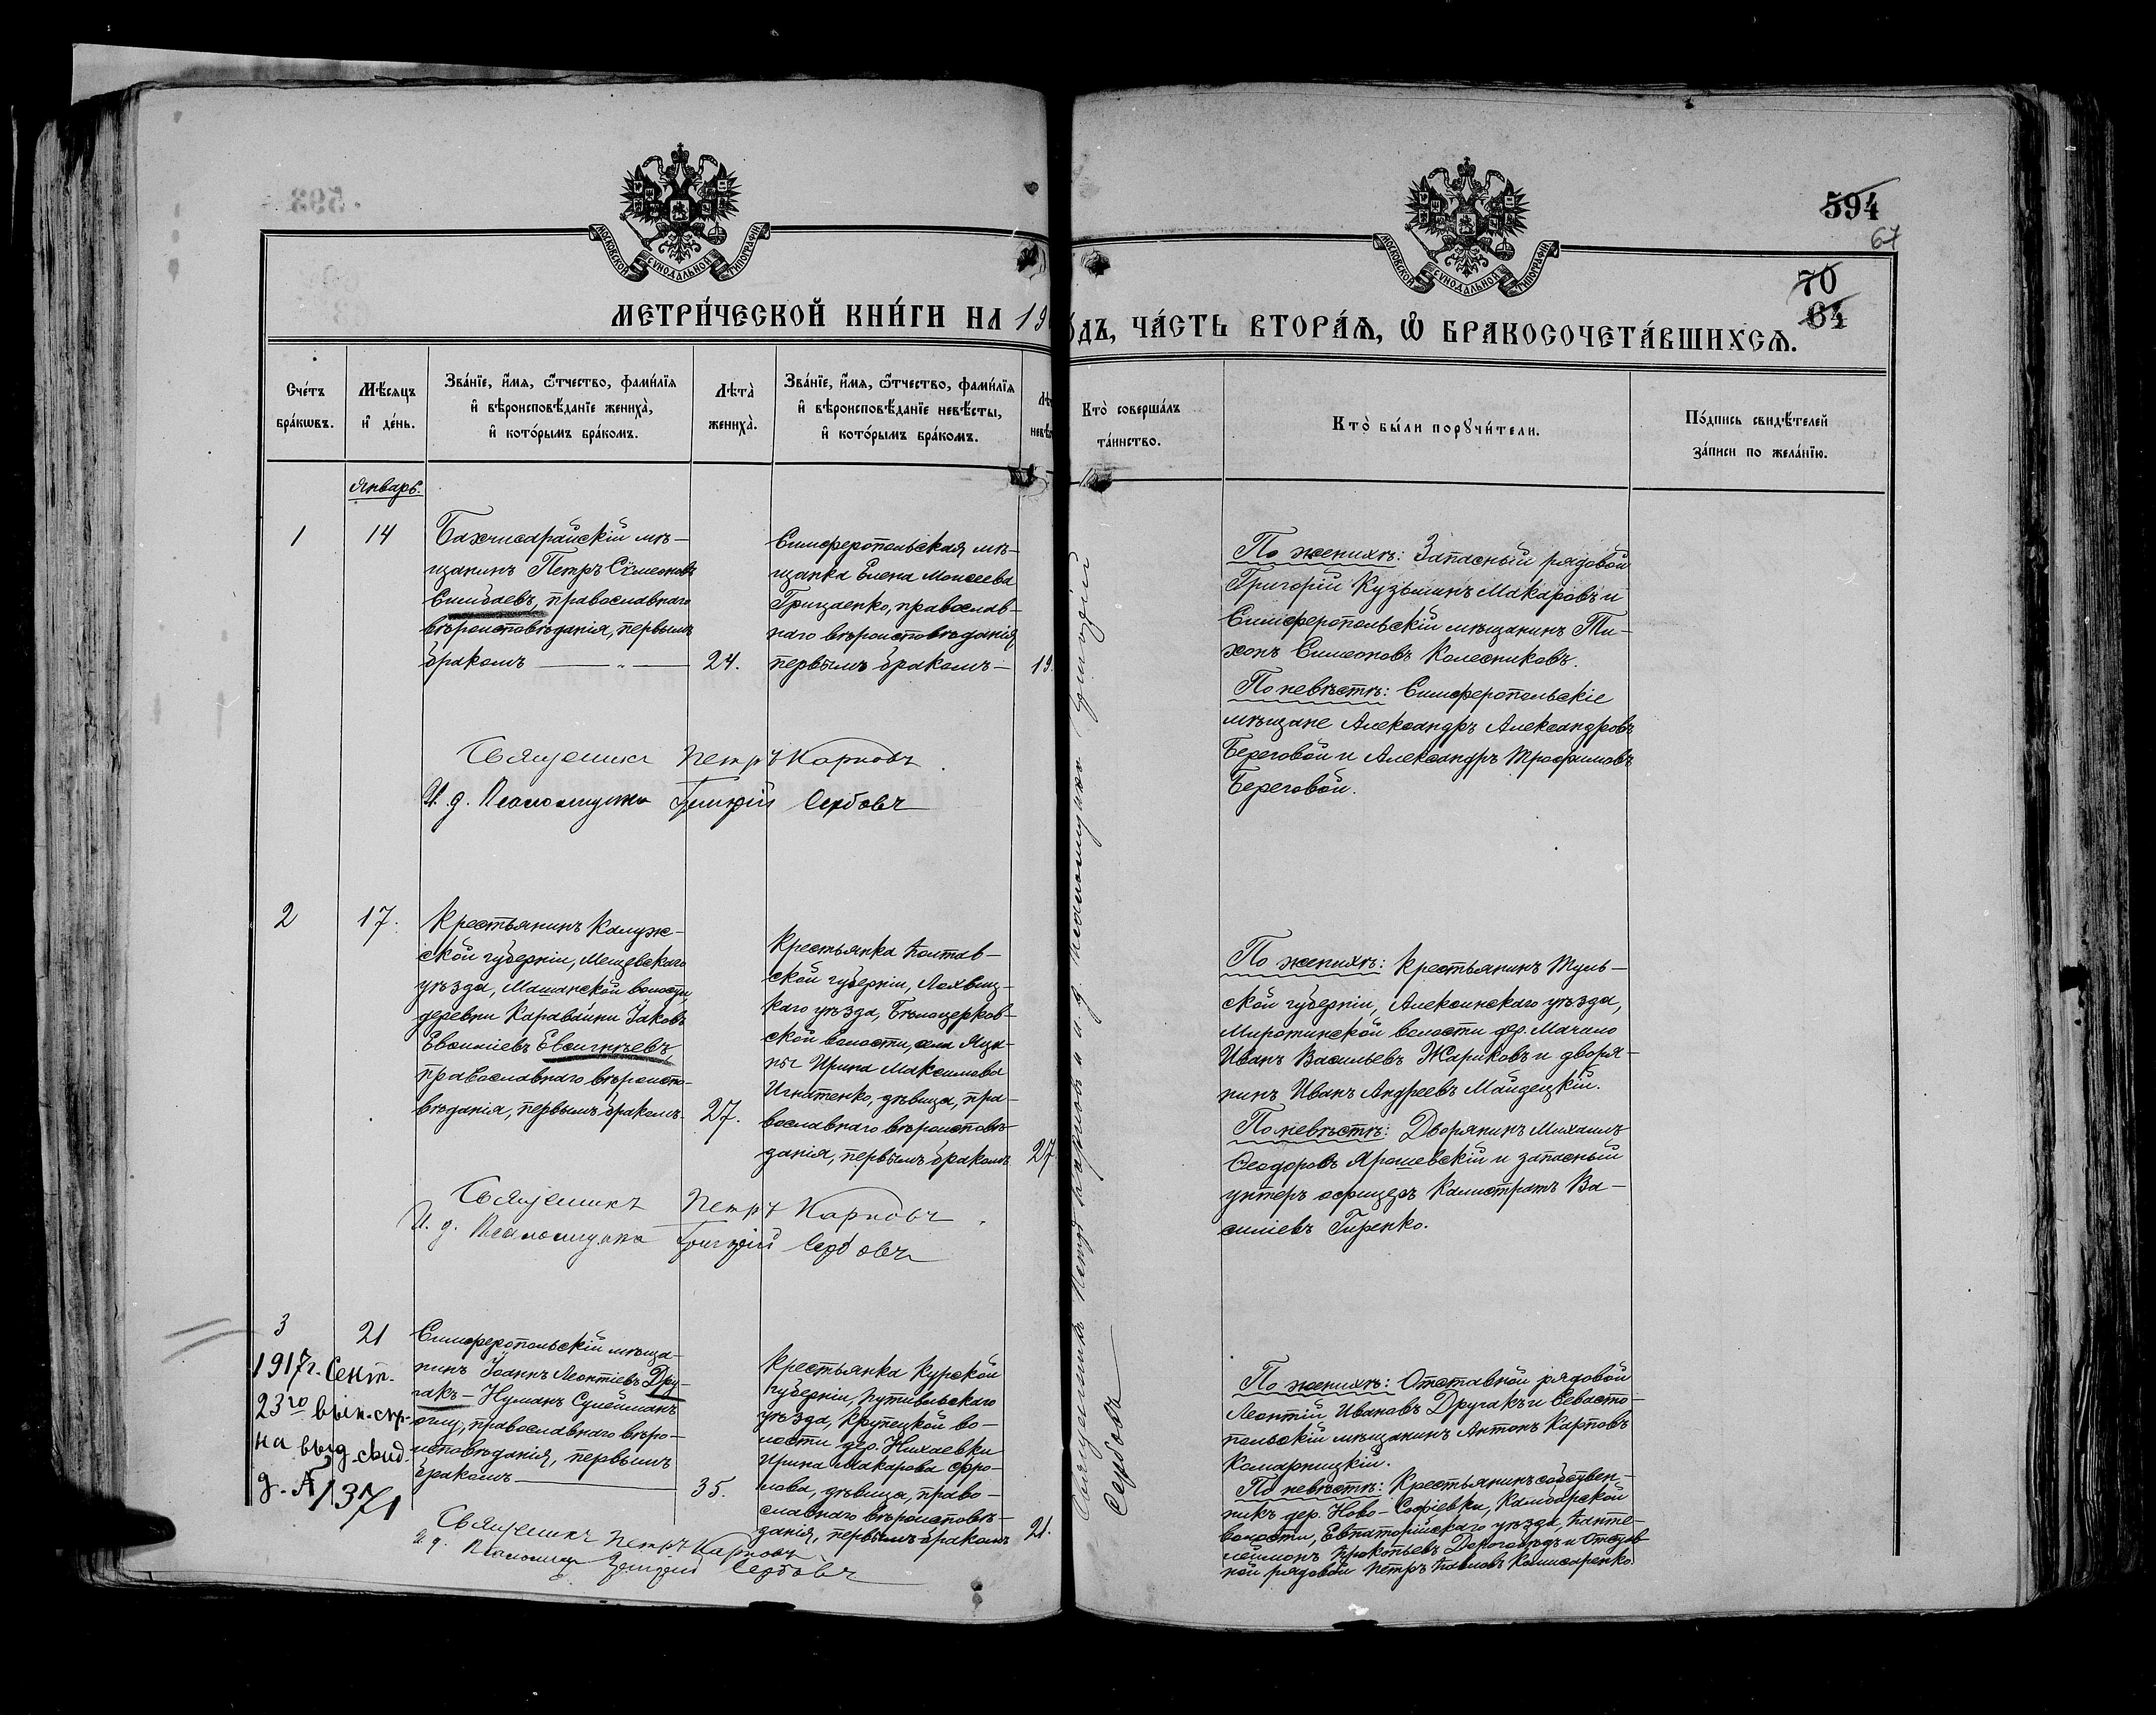 594
67
70
64
МОСКОВСКОЙ СУНОДАЛЬНОЙ ТИПОГРАФІИ
МОСКОВСКОЙ СУНОДАЛЬНОЙ ТИПОГРАФІИ
МЕТРИ́ЧЕСКОЙ КНИ́ГИ НА 19
ОДЪ, ЧА́СТЬ ВТОРА́Ѧ, Ѡ БРАКОСОЧЕТА́ВШИХСѦ.
Сче́тъ бра́кѡвъ.
Мѣ́сяцъ и де́нь.
Зва́нїе, и́мѧ, ѻ́тчество, фами́лїѧ и вѣроисповѣ́данїе жениха̀, и кото́рымъ бра́комъ.
Лѣта̀ жениха̀.
Зва́нїе, и́мѧ, ѻ́тчество, фами́лїѧ и вѣроисповѣ́данїе невѣ́сты, и кото́рымъ бра́комъ.
Кто̀ соверша́лъ та́инство.
Кто̀ бы́ли порꙋчи́тели.
По́дпись свидѣ́телей за́писи по жела́нїю.
Январь.
1
14
Бахчисарайскій мѣ-
щанинъ Петръ Сѵмеоновъ
Симбаевъ, православнаго
вѣроисповѣданія, первымъ
бракомъ — " —
24.
Симферопольская мѣ-
щанка Елена Моисеева
Грицаенко, православ-
наго вѣроисповѣданія,
первымъ бракомъ —
19.
По женихѣ: Запасный рядовой
Григорій Кузьминъ Макаровъ и
Симферопольскій мѣщанинъ Ти-
хонъ Симеоновъ Колесниковъ.
По невѣстѣ: Симферопольскіе
мѣщане Александръ Александровъ
Береговой и Александръ Трофимовъ
Береговой.
Священникъ Петръ Карповъ.
И. д. Псаломщика Григорій Сербовъ
2
17.
Крестьянинъ Калуж-
ской губерніи, Мещевскаго
уѣзда, Мошонской волости,
деревни Каравайки Іаковъ
Евсиміевъ Евсигнѣевъ,
православнаго вѣроиспо-
вѣданія, первымъ бракомъ.
27.
Крестьянка Полтав-
ской губерніи, Лохвиц-
каго уѣзда, Бѣлоцерков-
ской волости, села Яцы-
ны Ирина Максимова
Игнатенко, дѣвица, пра-
вославнаго вѣроисповѣ-
данія, первымъ бракомъ
27
По женихѣ: Крестьянинъ Туль-
ской губерніи, Алексинскаго уѣзда,
Миротинской волости дер. Мачано
Иванъ Васильевъ Жариковъ и дворя-
нинъ Иванъ Андреевъ Майдецкій.
По невѣстѣ: Дворянинъ Михаилъ
Ѳеодоровъ Ярошевскій и запасный
унтеръ офицеръ Калистратъ Ва-
силіевъ Гиренко.
Священникъ Петръ Карповъ.
И. д. Псаломщика Григорій Сербовъ
3
21
1917 г. Сент.
23го вып. скр.
на выд. свид.
д. № 1371
Симферопольскій мѣща-
нинъ Іоаннъ Леонтіевъ Дру-
гакъ — Нуманъ Сулейманъ
оглу, православнаго вѣро-
исповѣданія, первымъ
бракомъ —
35.
Крестьянка Курской
губерніи, Путивльскаго
уѣзда, Крупецкой во-
лости дер. Нихаевки
Ирина Макарова Фро-
лова, дѣвица, право-
славнаго вѣроисповѣ-
данія, первымъ бракомъ
21.
По женихѣ: Отставной рядовой
Леонтій Ивановъ Другакъ и Севасто-
польскій мѣщанинъ Антонъ Карповъ
Комарницкій.
По невѣстѣ: Крестьянинъ собствен-
никъ дер. Ново-Софіевки, Камбарской
волости, Евпаторійскаго уѣзда, Панте-
леймонъ Прокопьевъ Дорогобѣдъ и Отстав-
ной рядовой Петръ Павловъ Комисаренко.
Священникъ Петръ Карповъ
И. д. Псаломщика Григорій Сербовъ
Священникъ Петръ Карповъ и и. д. псаломщика Григорій
Сербовъ